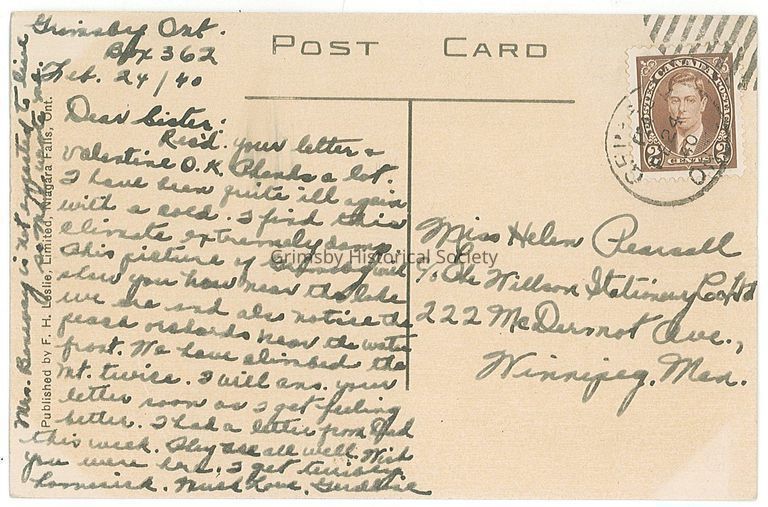 POST CARD
Grimsby Ont.
Box 362
Feb. 24/40
Dear Sister.
Rec'd. your letter &
Valentine O.K. Thanks a lot.
I have been quite ill again
with a cold. I find this
climate extremely damp.
This picture of Grimsby will
show you how near the lake
we are and also notice the
peach orchards near the water
front. We have climbed the
Mt. twice. I will ans. your
letter soon as I get feeling
better. I had a letter from Dad
this week. They are all well. Wish
you were here. I get terribly
homesick. Much Love,
Mrs. is not expected to live
Published by F. H. Leslie, Limited, Niagara Falls, Ont.
POSTES CANADA POSTAGE
2 CENTS 2
24
40
ONT
Miss Helen Pearsall
c/o The Willson Stationery Co Ltd
222 McDermot Ave.,
Winnipeg, Man.
Grimsby Historical Society